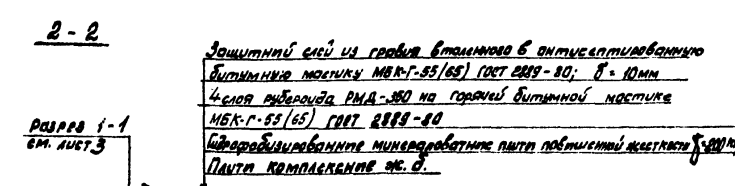 2 - 2
Защитный слой из гравия втопленного в антисептированную
битумную мастику МБК-Г-55/65) ГОСТ 2889-80; δ = 10мм
4 слоя рубероида РМД-350 на горячей битумной мастике
МБК-Г-55/65) ГОСТ 2889-80
Разрез 1-1
см. лист 3
Гидрофобизированные минераловатные плиты повышенной жесткости
Плиты комплексные ж.б.